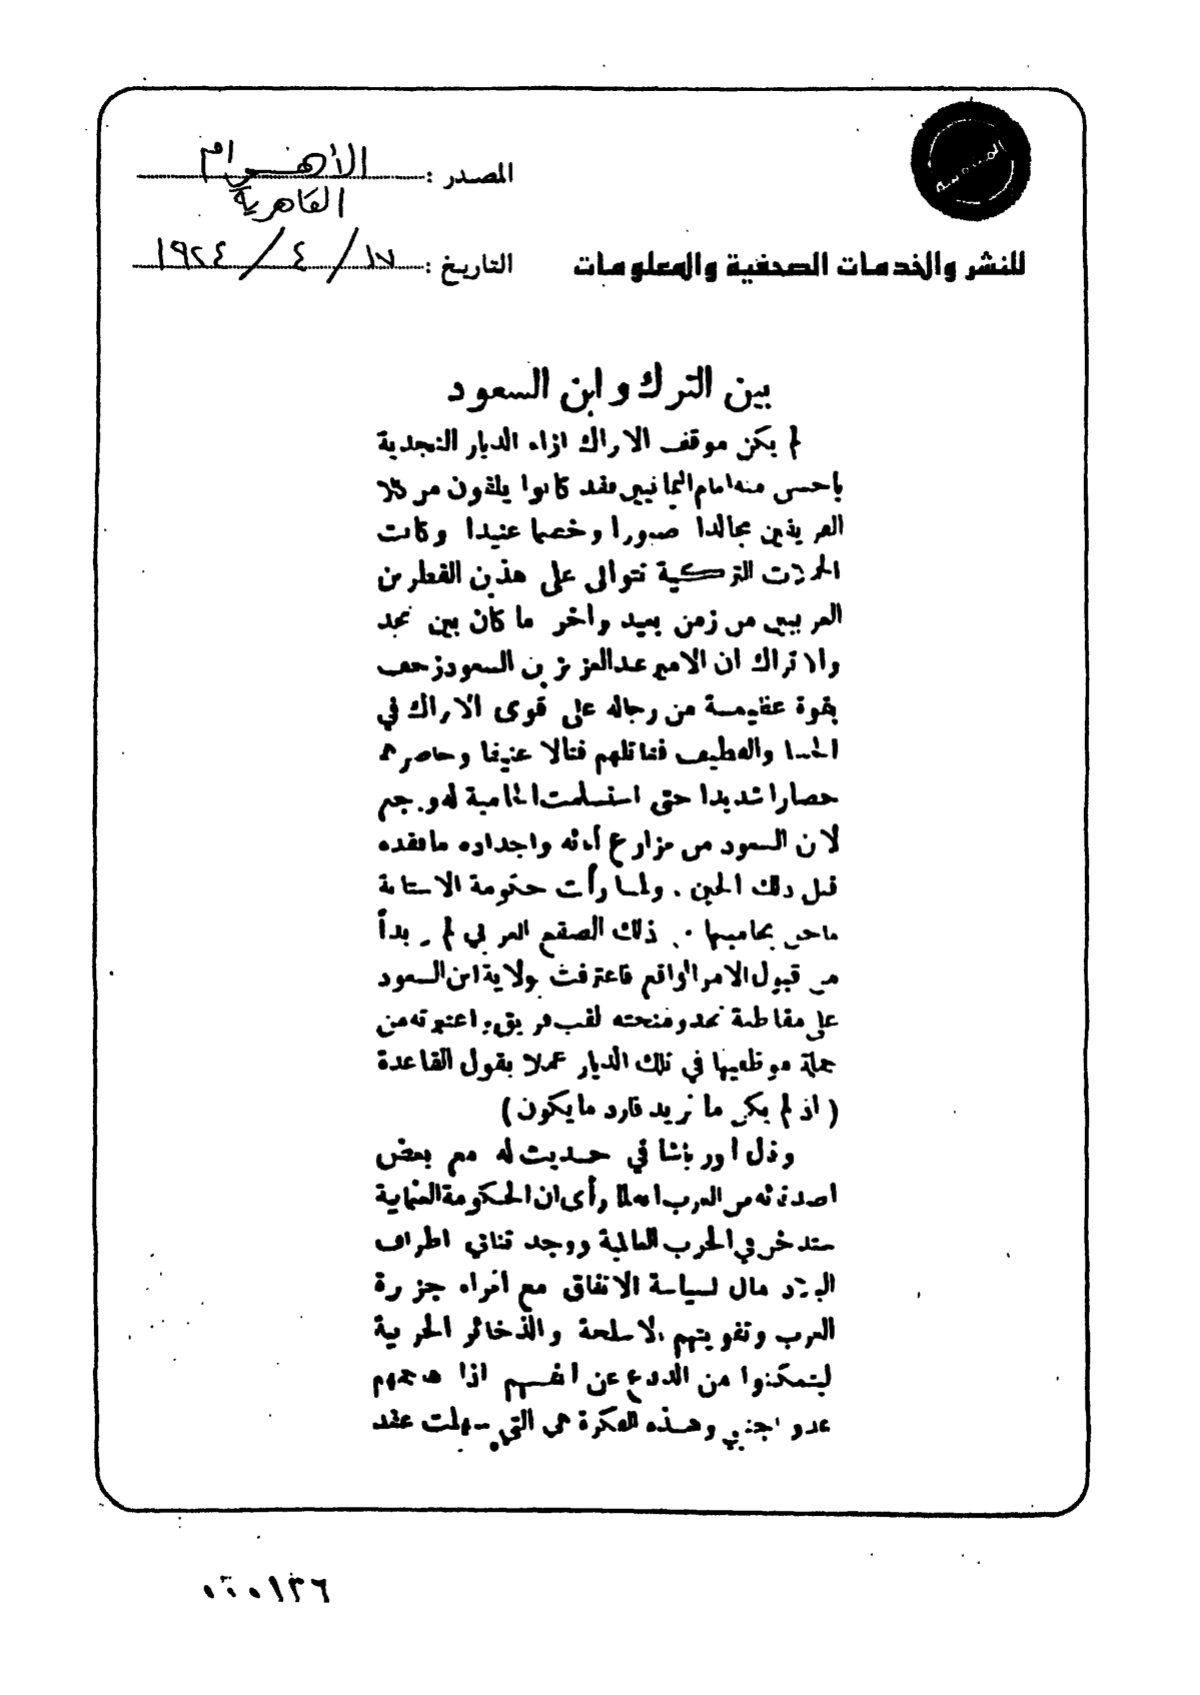 المصدر : الأهرام
القاهرية
للنشر والخدمات الصحفية والمعلومات
التاريخ : ١٧ / ٤ / ١٩٢٤
بين الترك وابن السعود
لم يكن موقف الاتراك ازاء الديار النجدية
باحسن منه امام اليمانيين فقد كانوا يلقون من كلا
الفريقين مجالدا صبورا وخصما عنيدا وكانت
الحملات التركية تتوالى على هذين القطرين
العربيين من زمن بعيد وآخر ما كان بين نجد
والاتراك ان الامير عبد العزيز بن السعود زحف
بقوة عظيمة من رجاله على قوى الاتراك في
الحسا والقطيف فقاتلهم قتالا عنيفا وحاصرهم
حصارا شديدا حتى استسلمت الحامية له ورجع
لابن السعود من مزارع آبائه واجداده ما فقده
قبل ذلك الحين . ولما رأت حكومة الاستانة
ماحل بحاميتها ذلك الصقع العربي لم بدأ
من قبول الامر الواقع فاعترفت بولاية ابن السعود
على مقاطعة نجد ومنحته لقب فريق واعتبرته من
جملة موظفيها في تلك الديار عملا بقول القاعدة
( اذ لم يكن ما تريد فارد ما يكون )
وقال انور باشا في حديث له مع بعض
اصدقائه من العرب انه لما رأى ان الحكومة العثمانية
ستدخل في الحرب العالمية ووجد تنائي اطراف
البلاد مال لسياسة الاتفاق مع امراء جزيرة
العرب وتقويتهم بالاسلحة والذخائر الحربية
ليتمكنوا من الدفاع عن انفسهم اذا هاجمهم
عدو اجنبي وهذه الفكرة هي التي سهلت عقد